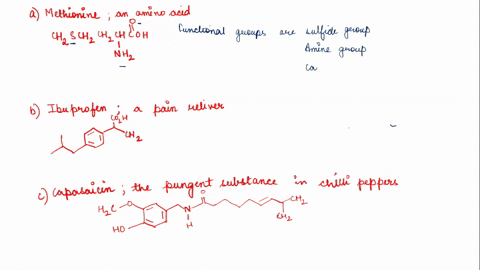 a) Methionine ; an amino acid
O
CH2SCH2CH2CHCOH
NH2
Functional groups are sulfide group
Amine group
Ca
b) Ibuprofen ; a pain reliver
CO2H
CH2
c) Capasaicin ; the pungent substance in chilli peppers
H3C O
HO
N
H
O
CH2
CH2